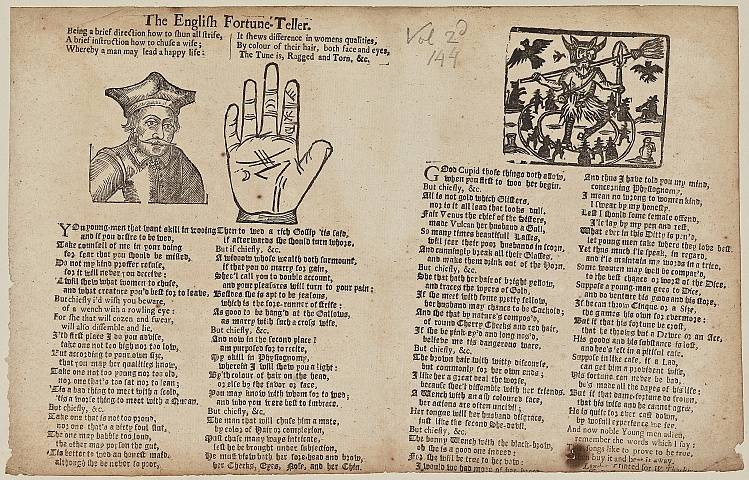 The English Fortune-Teller.
Being a brief direction how to shun all strife,
A brief instruction how to chuse a wife;
Whereby a man may lead a happy life:
It shews difference in womens qualities,
By colour of their hair, both face and eyes,
The Tune is, Ragged and Torn, &c.
Vol 2d
144
YOu young-men that want skill in wooing
and if you desire to be wed,
Take counsel of me in your doing
for fear that you should be misled,
Do not my kind proffer refuse,
for it will never you deceive:
I'll shew what women to chuse,
and what creature you'd best for to leave,
But chiefly i'd wish you beware,
of a wench with a rowling eye:
For she that will cozen and swear,
will also dissemble and lie,
I'th first place I do you advise,
take one not too high nor too low,
But according to your own size,
that you may her qualities know,
Take one not too young nor too old,
nor one that's too fat nor to lean;
'Tis a bad thing to meet with a scold,
'tis a worse thing to meet with a Quean.
But chiefly, &c.
Take one that is not too proud,
nor one that's a dirty foul slut,
The one may babble too loud,
the other may poyson the gut,
'Tis better to wed an honest maid,
although she be never so poor,
Then to wed a rich Gossip 'tis said,
if afterwards she should turn whore,
But if chiefly, &c.
A widdow whose wealth doth surmount,
if that you do marry for gain,
She'l call you to double account,
and your pleasures will turn to your pain:
Besides she is apt to be jealous,
which is the fore-runner of strife:
As good to be hang'd at the Gallows,
as marry with such a cross wife.
But chiefly, &c.
And now in the second place I
am purposed for to recite,
My skill in Phisognomy,
wherein I will shew you a light:
By th'colour of hair on the head,
or else by the favor of face,
You may know with whom for to wed;
and who you were best to embrace.
But chiefly, &c.
The man that will chuse him a mate,
by color of hair or complexion,
Must chase many ways intricate,
lest he be brought under subjection,
He must view both her fore-head and brow,
her Cheeks, Eyes, Nose, and her Chin.
GOod Cupid those things doth allow,
when you first to woo her begin.
But chiefly, &c.
All is not gold which Glisters,
nor is it all lead that looks dull,
Fair Venus the chief of the sisters,
made Vulcan her husband a Gull,
So many times beautiful Lasses,
will jeer their poor husbands in scorn,
And cunningly break all their Glasses,
and make them drink out of the horn.
But chiefly, &c.
She that hath her hair of bright yellow,
and traces the wyers of Gold,
If she meet with some pretty fellow,
her husband may chance to be Cuckold,
And she that by nature's compos'd,
of round Cherry Cheeks and red hair,
If she be pink-ey'd and long nos'd,
believe me tis dangerous ware.
But chiefly, &c.
The brown hair with witty discourse,
but commonly for her own ends;
I like her a great deal the worse,
because she'l dissemble with her friends.
A Wench with an ash coloured face,
her actions are often uncivil;
Her tongue will her breeding disgrace,
just like the second she-devil.
But chiefly, &c.
The bonny Wench with the black-brow,
oh she is a good one indeed:
For she will be true to her vow:
I would we had more of her
And thus I have told you my mind,
concerning Physognomy,
I mean no wrong to women kind,
I swear by my honesty.
Lest I should some female offend,
I'le lay by my pen and rest,
What they in this Ditty is pen'd,
let young men take where they love best.
Yet thus much I'le speak, in regard,
and i'le maintain my words in a trice,
Some women may well be compar'd,
to the best chance or worst of the Dice,
Suppose a young-man goes to Dice,
and do venture his goods and his store,
If he can throw Cinque or a Size,
the games his own for evermore:
But if that his fortune be crost,
that he throws but a Deuce or an Ace,
His goods and his substance is lost,
and hee's left in a pitiful case.
Suppose it like case, if a Lad,
can get him a provident wife,
His fortune can never be bad,
he's made all the dayes of his life:
But if that dame-fortune do frown,
that his wife and he cannot agree,
He is quite for ever cast down,
by woful experience we see.
And now noble Young men adieu,
remember the words which I say:
songs like to prove to be true,
buy it and bear it away.
London printed for W.